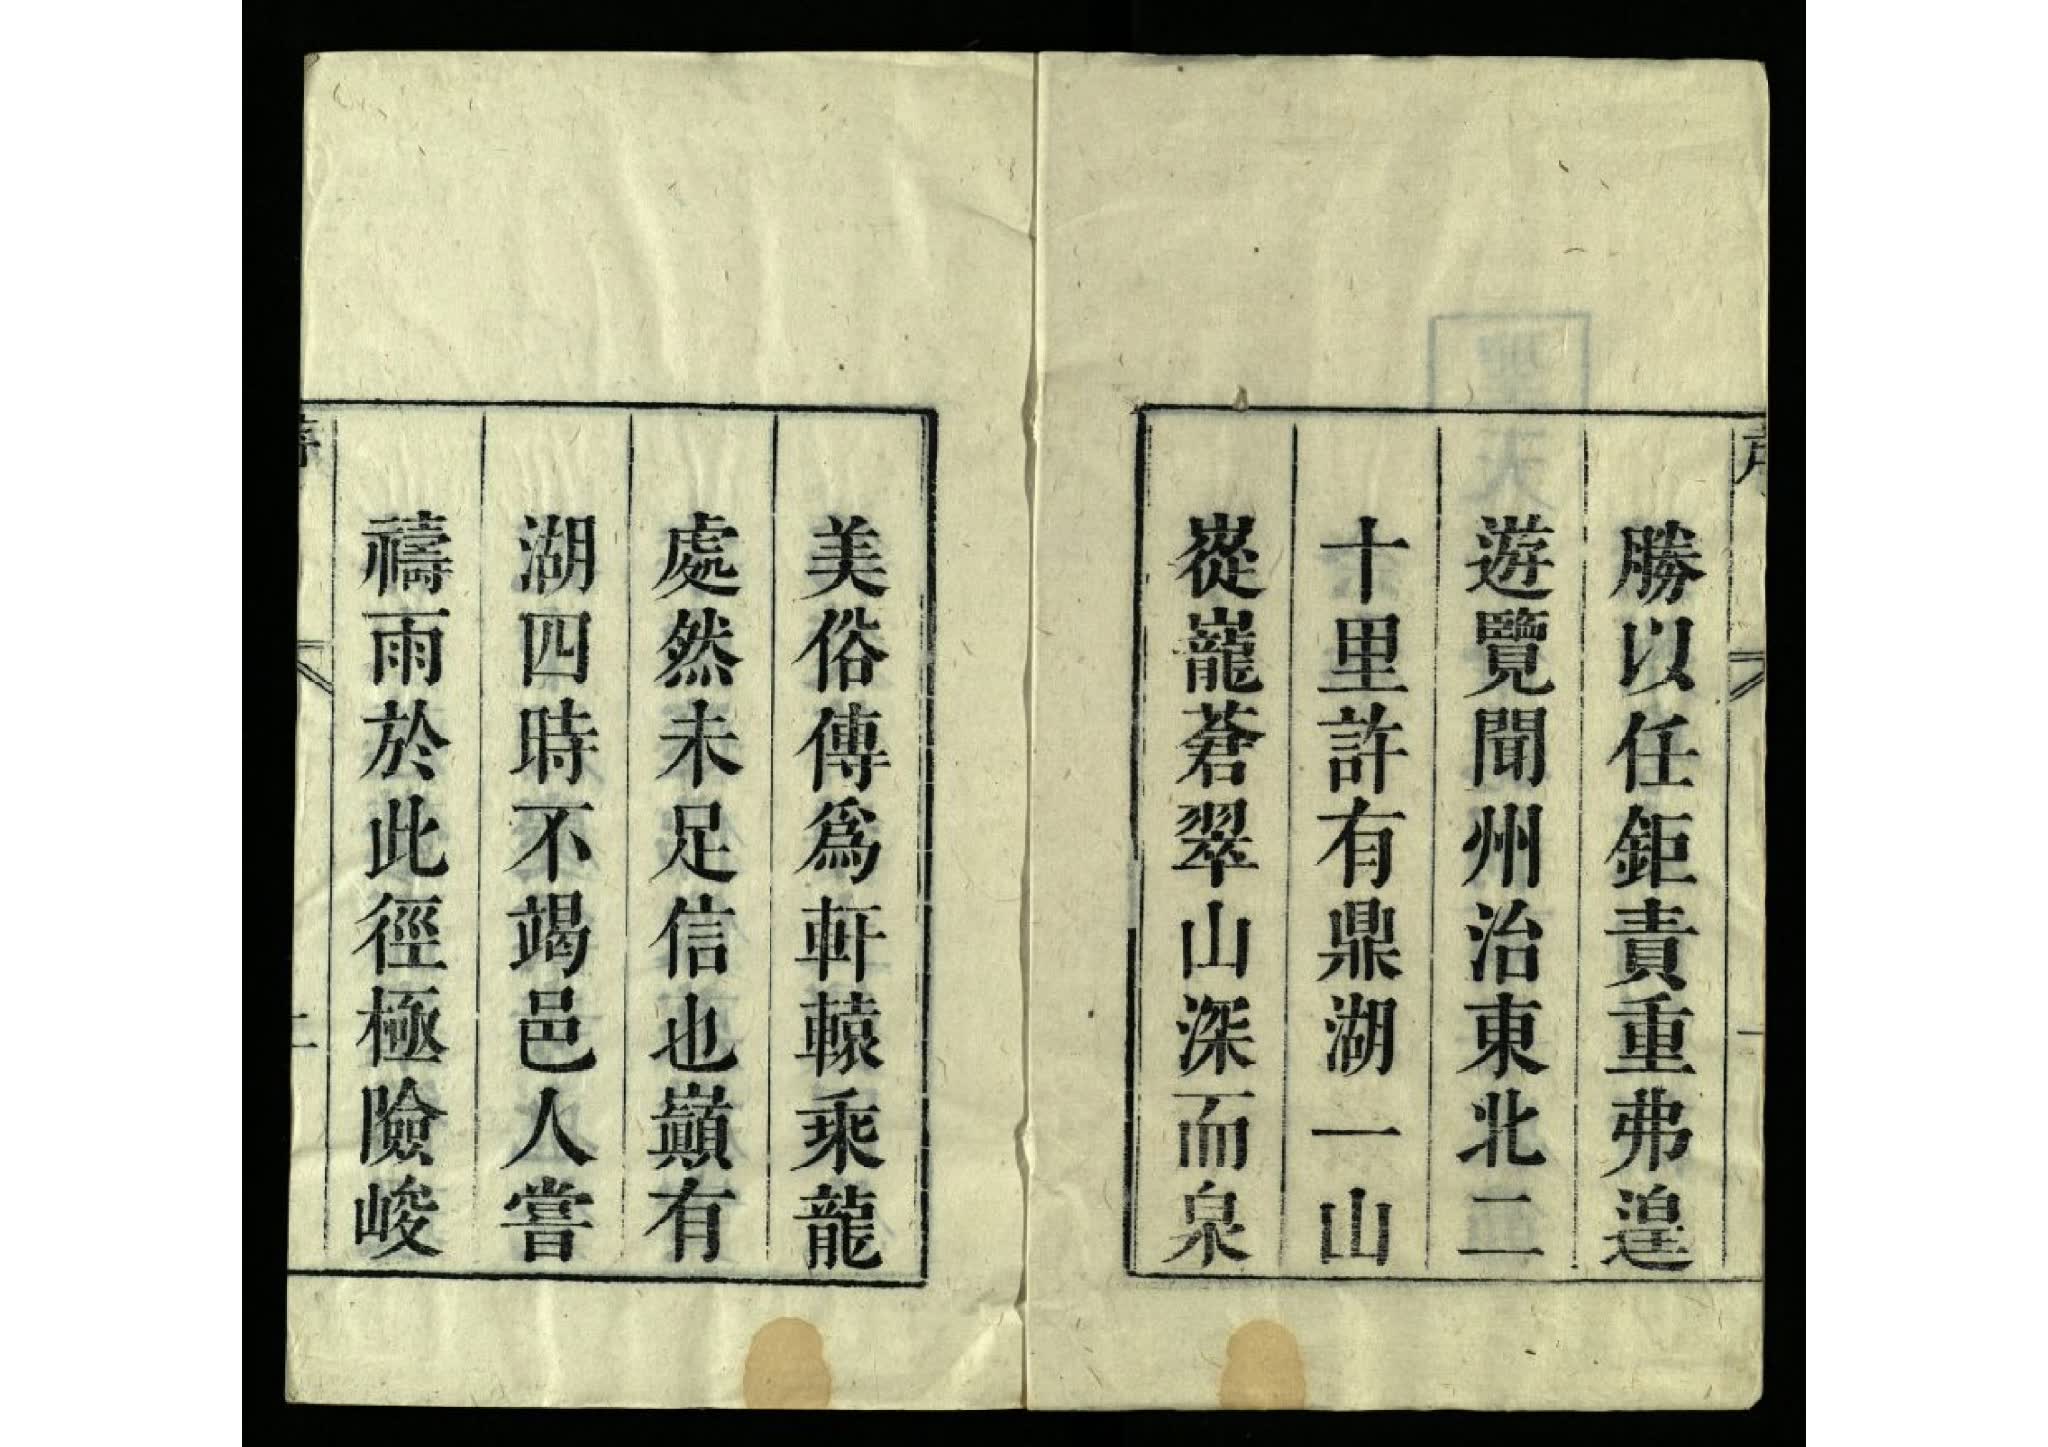 勝以任鉅責重弗遑
遊覽聞州治東北二
十里許有鼎湖一山
嵸巃蒼翠山深而泉
美俗傳爲軒轅乘龍
處然未足信也巔有
湖四時不竭邑人嘗
禱雨於此徑極險峻